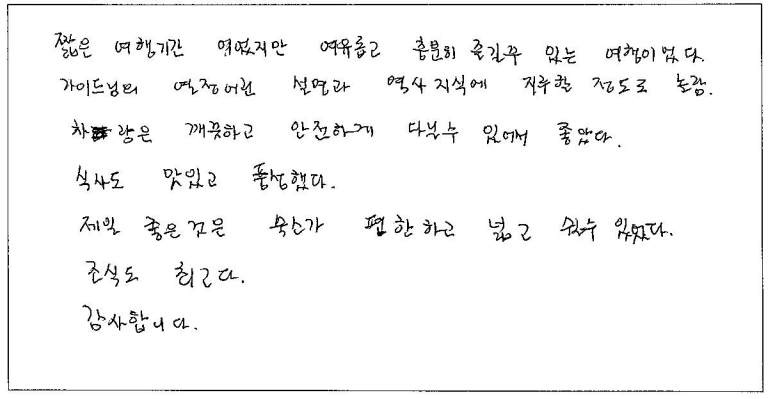 짧은 여행기간 였었지만 여유롭고 충분히 즐길수 있는 여행이었다.
가이드님의 열정어린 설명과 역사 지식에 질투할 정도로 놀람.
차량은 깨끗하고 안전하게 다닐수 있어서 좋았다.
식사도 맛있고 풍성했다.
제일 좋은것은 숙소가 편한하고 넓고 쉴수 있었다.
조식도 최고다.
감사합니다.